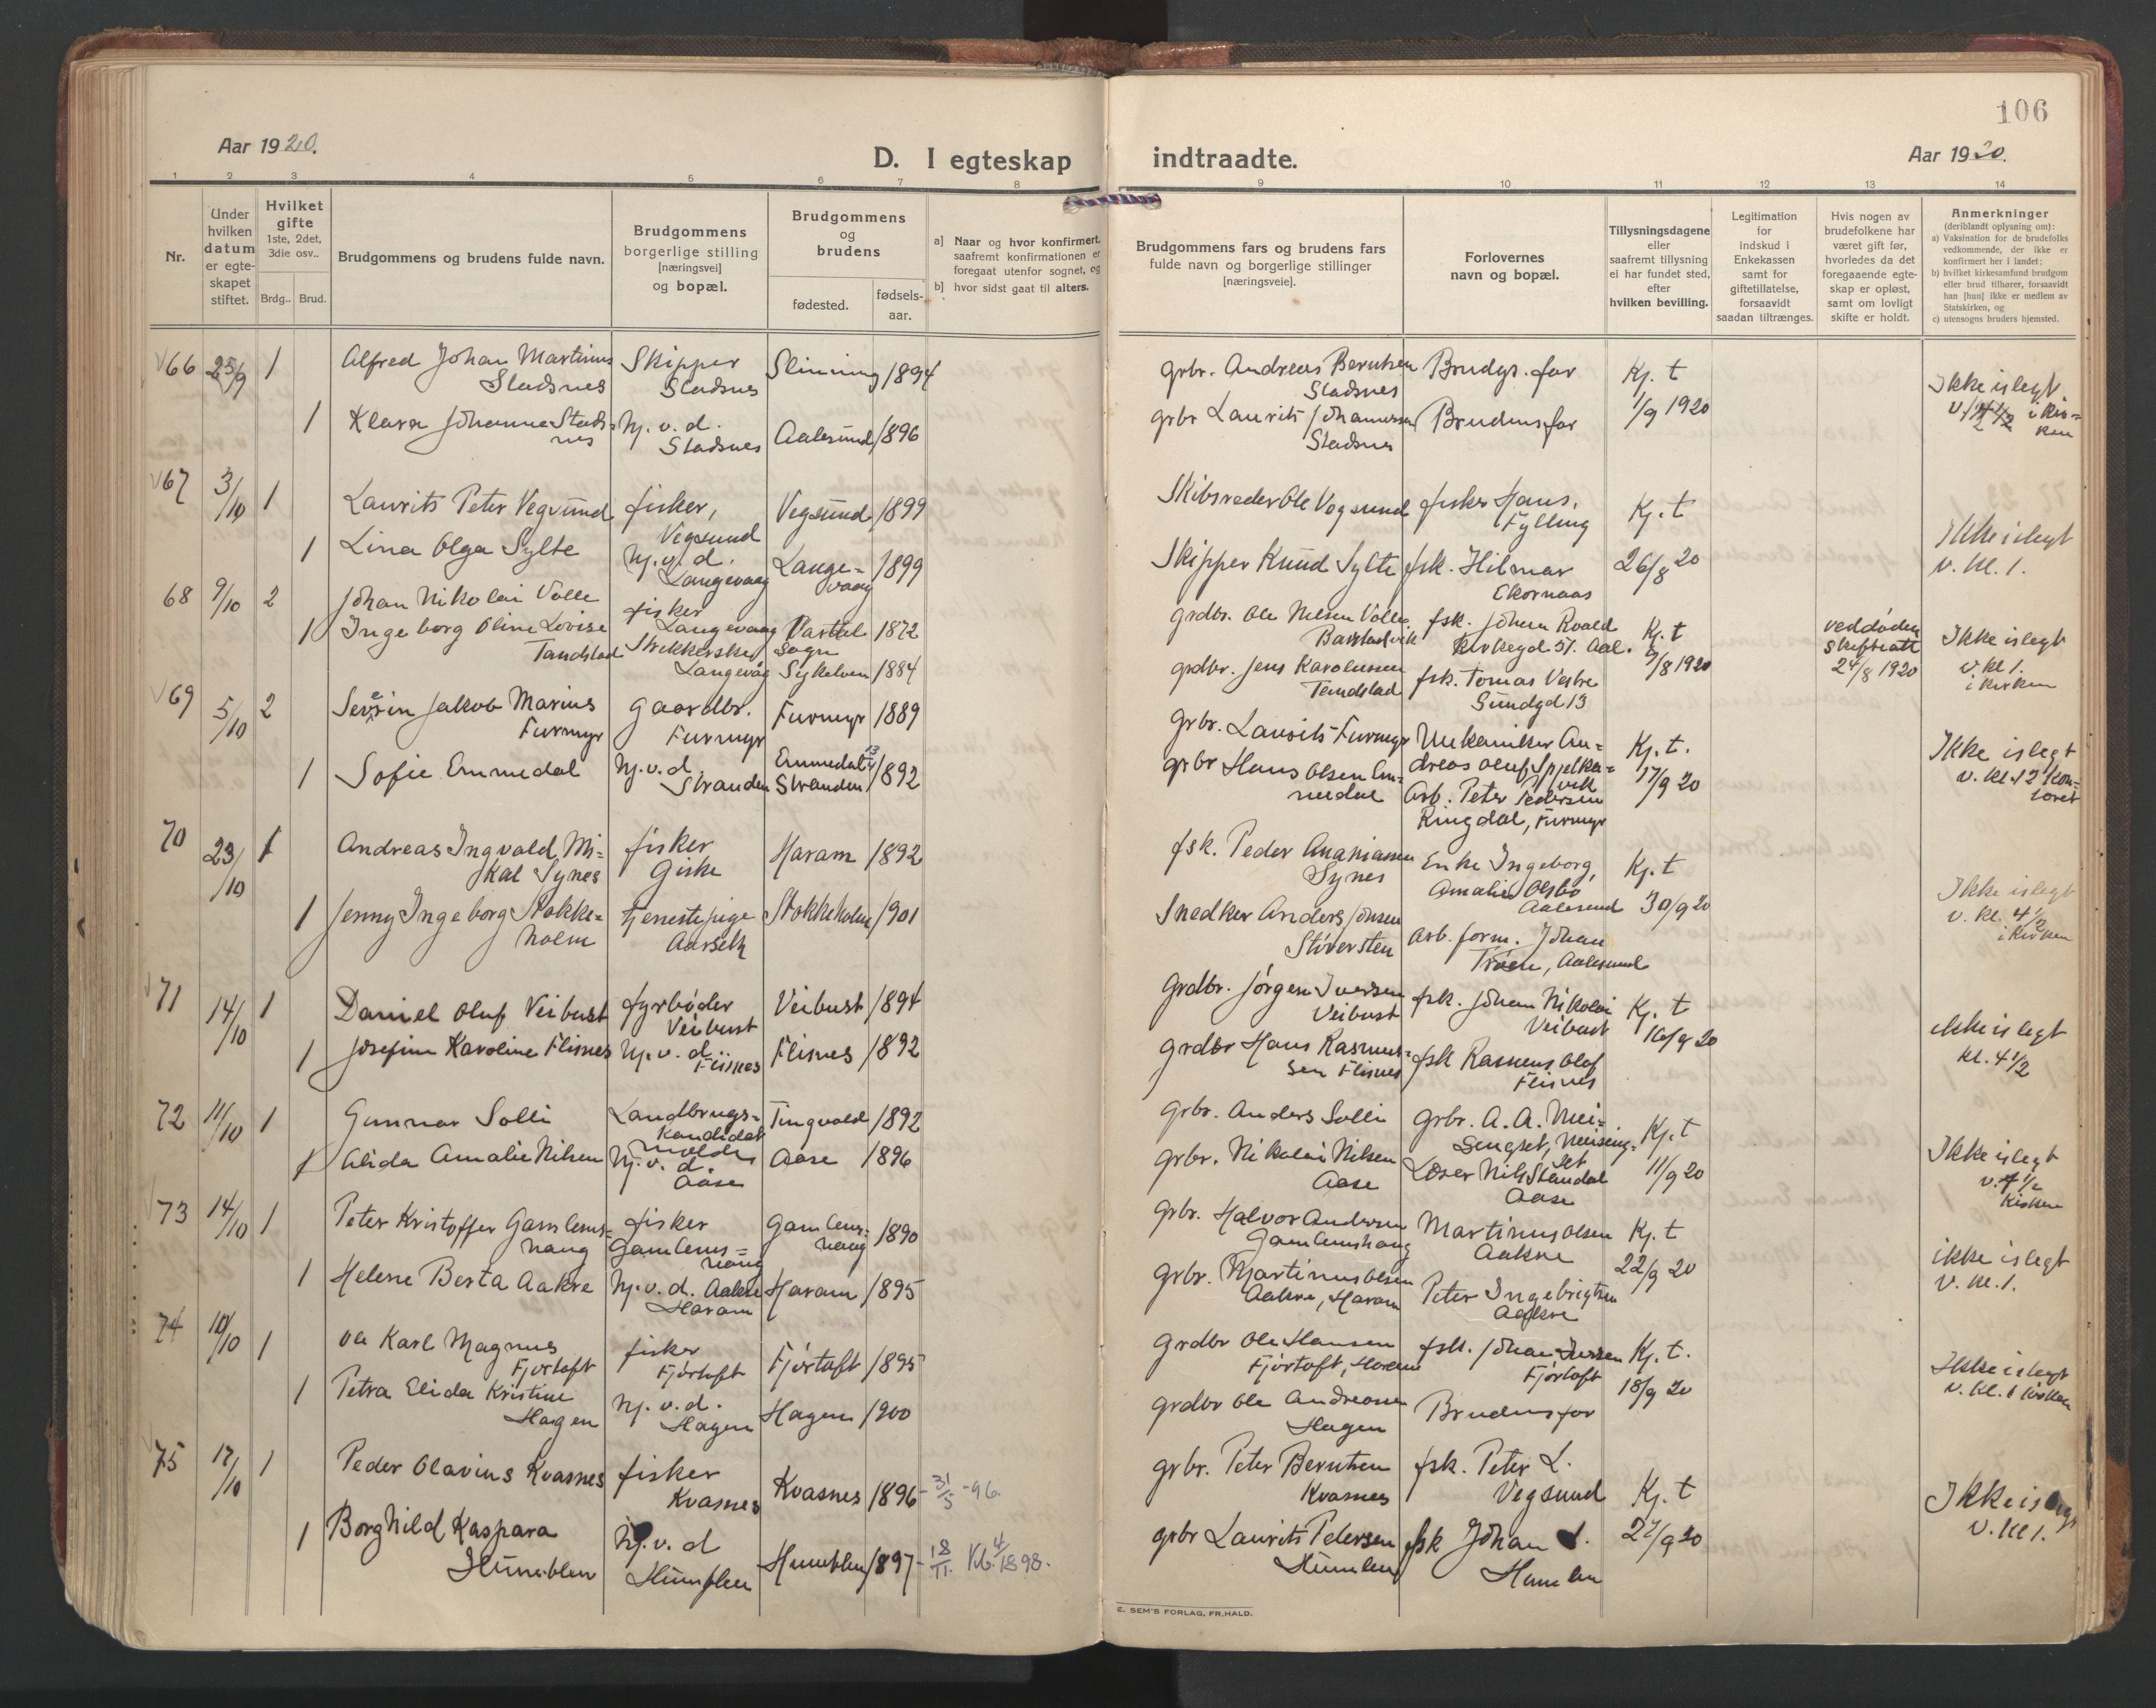 106
Aar 1920.
D. I egteskap indtraadte.
Aar 1920.
1 2 3 4 5 6 7 8 9 10 11 12 13 14
Nr.
Under hvilken datum er egte-skapet stiftet.
Hvilket gifte 1ste, 2det, 3die osv..
Brdg.. Brud.
Brudgommens og brudens fulde navn.
Brudgommens borgerlige stilling [næringsvei] og bopæl.
Brudgommens og brudens
fødested.
fødsels-aar.
a] Naar og hvor konfirmert, saafremt konfirmationen er foregaat utenfor sognet, og
b] hvor sidst gaat til alters.
Brudgommens fars og brudens fars fulde navn og borgerlige stillinger [næringsveie].
Forlovernes navn og bopæl.
Tillysningsdagene eller saafremt tillysning ei har fundet sted, efter hvilken bevilling.
Legitimation for indskud i Enkekassen samt for giftetillatelse, forsaavidt saadan tiltrænges.
Hvis nogen av brudefolkene har været gift før, hvorledes da det foregaaende egte-skap er opløst, samt om lovligt skifte er holdt.
Anmerkninger (deriblandt oplysning om):
a) Vaksination for de brudefolks vedkommende, der ikke er konfirmert her i landet;
b) hvilket kirkesamfund brudgom eller brud tilhører, forsaavidt han [hun] ikke er medlem av Statskirken, og
c) utensogns bruders hjemsted.
66 25/9 1 Alfred Johan Martinus Skipper Slinning 1894 grbr. Andreas Berntsen Brudgs. far Kj. t
Sladsnes Sladsnes Sladsnes 1/9 1920 Ikke islegt
1 Klara Johanne Slads= Hj. v. d. Aalesund 1896 grbr Laurits Johannessen Brudens far
nes Sladsnes Sladsnes i kir=
ken
67 3/10 1 Laurits Peter Vegsund fisker, Vegsund 1899 Skibsreder Ole Vegsund fisker Hans. Kj. t
Vegsund Fylling
1 Lina Olga Sylte Hj. v. d. Lange= 1899 Skipper Knud Sylte fsk. Hilmar 26/8 20 Ikke islegt
Langevaag vaag v. kl. 1.
68 9/10 2 Johan Nikolai Volle fisker Vartdal 1872 grdbr. Ole Nilsen Volle fsk. Johan Roald Kj. t ved døden Ikke islegt
Langevaag sogn Kirkegd 57. Aal. 9/8 1920 24/8 1920 v kl 1.
1 Ingeborg Oline Lovise Strikkerske Sykelven 1884 grdbr. Jens Karolussen fsk. Tomas Vestre i kirken
Tandstad Langevåg Tandstad Sundgd 13
69 5/10 2 Severin Jakob Marius Gaardbr. Furmyr 1889 Grbr. Laurits Furmyr Mekaniker An= Kj. t.
Furmyr Furmyr dreas Oluf Spjelka= 17/9 20 Ikke islegt
1 Sofie Emmedal Hj. v. d. Emmedal 1892 grbr Hans Olsen Em= vik v. kl. 12 kon=
Stranden Stranden medal Arb. Peter Pedersen toret
Ringdal, Furmyr
70 23/10 1 Andreas Ingvald Mi= fisker Haram 1892 fsk. Peder Ananiassen Enke Ingeborg, Kj. t
kal Synes Giske Synes Amalie Olsbø Ikke islegt
Aalesund 30/9 20 v. kl. 4 1/2
1 Jenny Ingeborg Stokke= tjenestepige Stokkeholm 1901 Snedker Anders Jonsen Arb. form. Johan i kirken
holm Aarseth Stiversten Trøen, Aalesund
71 14/10 1 Daniel Oluf Veibust fyrbøder Veibust 1894 Grdbr. Jørgen Iversen fsk. Johan Nikolai Kj. t
Veibust Veibust Veibust 16/9 20 ikke islegt
1 Josefine Karoline Flisnes Hj. v. d. Flisnes 1892 grdbr Hans Rasmus= fsk Rasmus Olof kl. 4 1/2
Flisnes sen Flisnes Flisnes
72 11/10 1 Gunnar Solli Landbrugs= Tingvold 1892 grbr. Anders Solli Grbr. A. A. Mei= Kj. t
kandidat Molde sengset, Meiseng= set Ikke islegt
1 Alida Amalie Nilsen Hj. v. d. Aase 1896 grbr. Nikolai Nilsen Løser Nils Standal 11/9 20
Aase Aase Aase Kirken
73 14/10 1 Peter Kristoffer Gamlems= fisker Gamlems= 1890 Grbr. Halvor Andersen Martinus Olsen Kj. t
haug Gamlems= haug haug Gamlemshaug Aakre 22/9 20 ikke islegt
1 Helene Berta Aakre Hj. v. d. Aakre Haram 1895 grbr. Martinus Olsen Peter Ingebrigtsen v. kl. 1.
Haram Aakre, Haram Aakre
74 10/10 1 Ole Karl Magnus fisker Fjørtoft 1895 Grdbr Ole Hansen fsk. Johan Iversen Kj. t.
Fjørtoft Fjørtoft Fjørtoft, Haram Fjørtoft 18/9 20 Ikke islegt
1 Petra Elida Kristine Hj. v. d. Hagen 1900 grdbr Ole Andreassen Brudens far v. kl. 1 kirken
Hagen Hagen Hagen
75 17/10 1 Peder Olavius Kvasnes fisker Kvasnes 1896 - 31/5 -96. grbr. Peter Berntsen fsk. Peter L. Kj. t
Kvasnes Kvasnes Vegsund Ikke islegt
1 Borghild Kaspara Hj. v. d Humblen 1897 - 18/11. Kb. 4/1898. grbr Laurits Pedersen fsk Johan L. 27/9 20 v. kl 1.
Humblen Humblen Humlen Humlen
E. SEM'S FORLAG, FR.HALD.